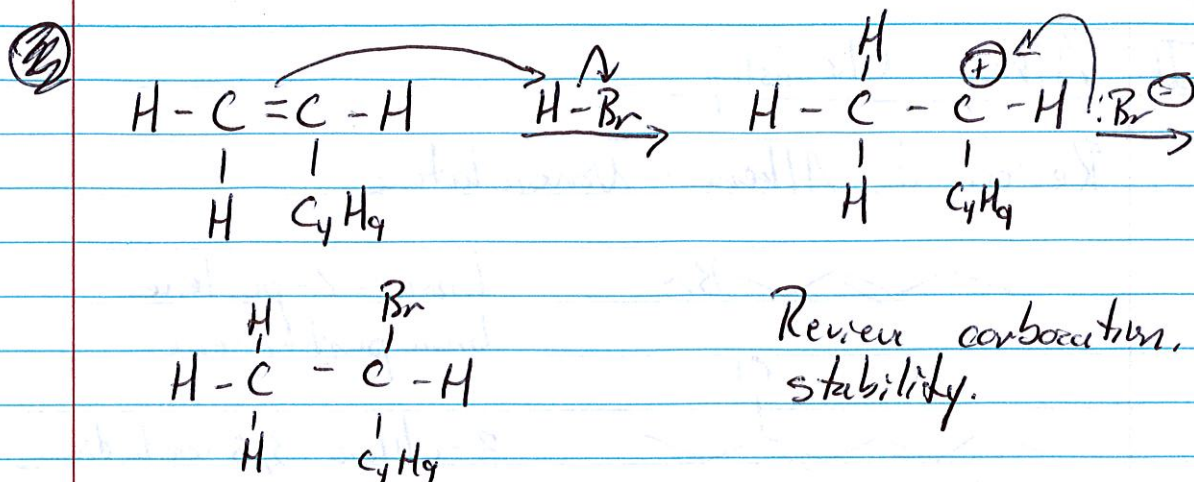 H
H - C = C - H H - Br H - C - C ⊕ - H :Br ⊖
H C4H9 H C4H9
H Br
H - C - C - H
H C4H9
Review carbocation.
stability.